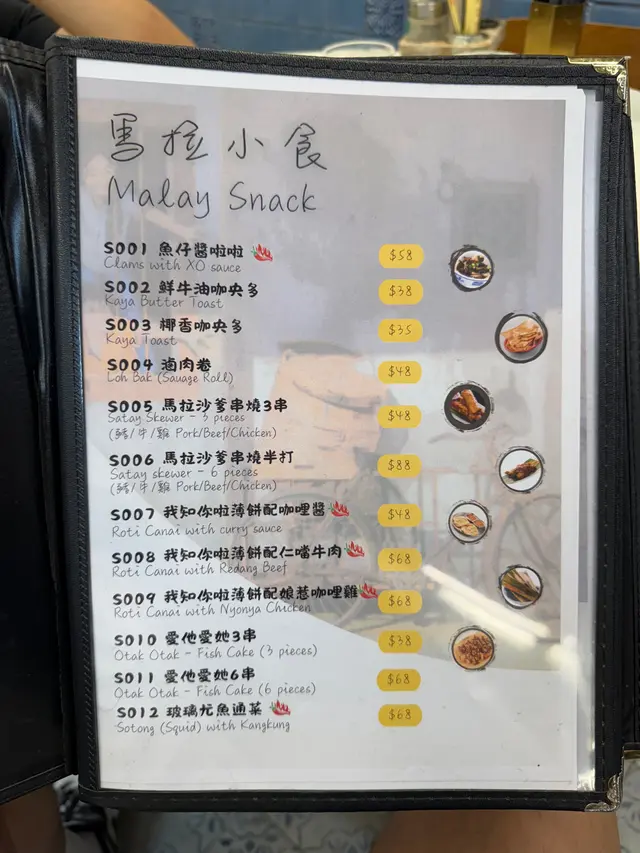 馬拉小食
Malay Snack
S001 魚仔醬啦啦
Clams with XO sauce
$58
S002 鮮牛油咖央多
Kaya Butter Toast
$38
S003 椰香咖央多
Kaya Toast
$35
S004 滷肉卷
Loh Bak (Sauage Roll)
$48
S005 馬拉沙爹串燒3串
Satay Skewer - 3 pieces
(豬/牛/雞 Pork/Beef/Chicken)
$48
S006 馬拉沙爹串燒半打
Satay skewer - 6 pieces
(豬/牛/雞 Pork/Beef/Chicken)
$88
S007 我知你啦薄餅配咖哩醬
Roti Canai with curry sauce
$48
S008 我知你啦薄餅配仁噹牛肉
Roti Canai with Redang Beef
$68
S009 我知你啦薄餅配娘惹咖哩雞
Roti Canai with Nyonya Chicken
$68
S010 愛他愛她3串
Otak Otak - Fish Cake (3 pieces)
$38
S011 愛他愛她6串
Otak Otak - Fish Cake (6 pieces)
$68
S012 玻璃尤魚通菜
Sotong (Squid) with Kangkung
$68